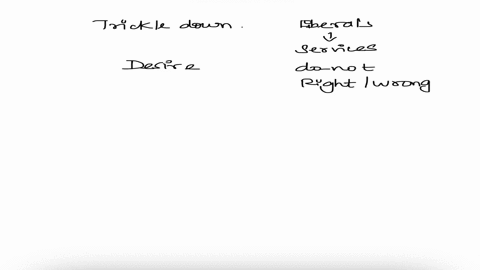 Trickle down.
Liberals
↓
Services
Desire
do not
Right / wrong